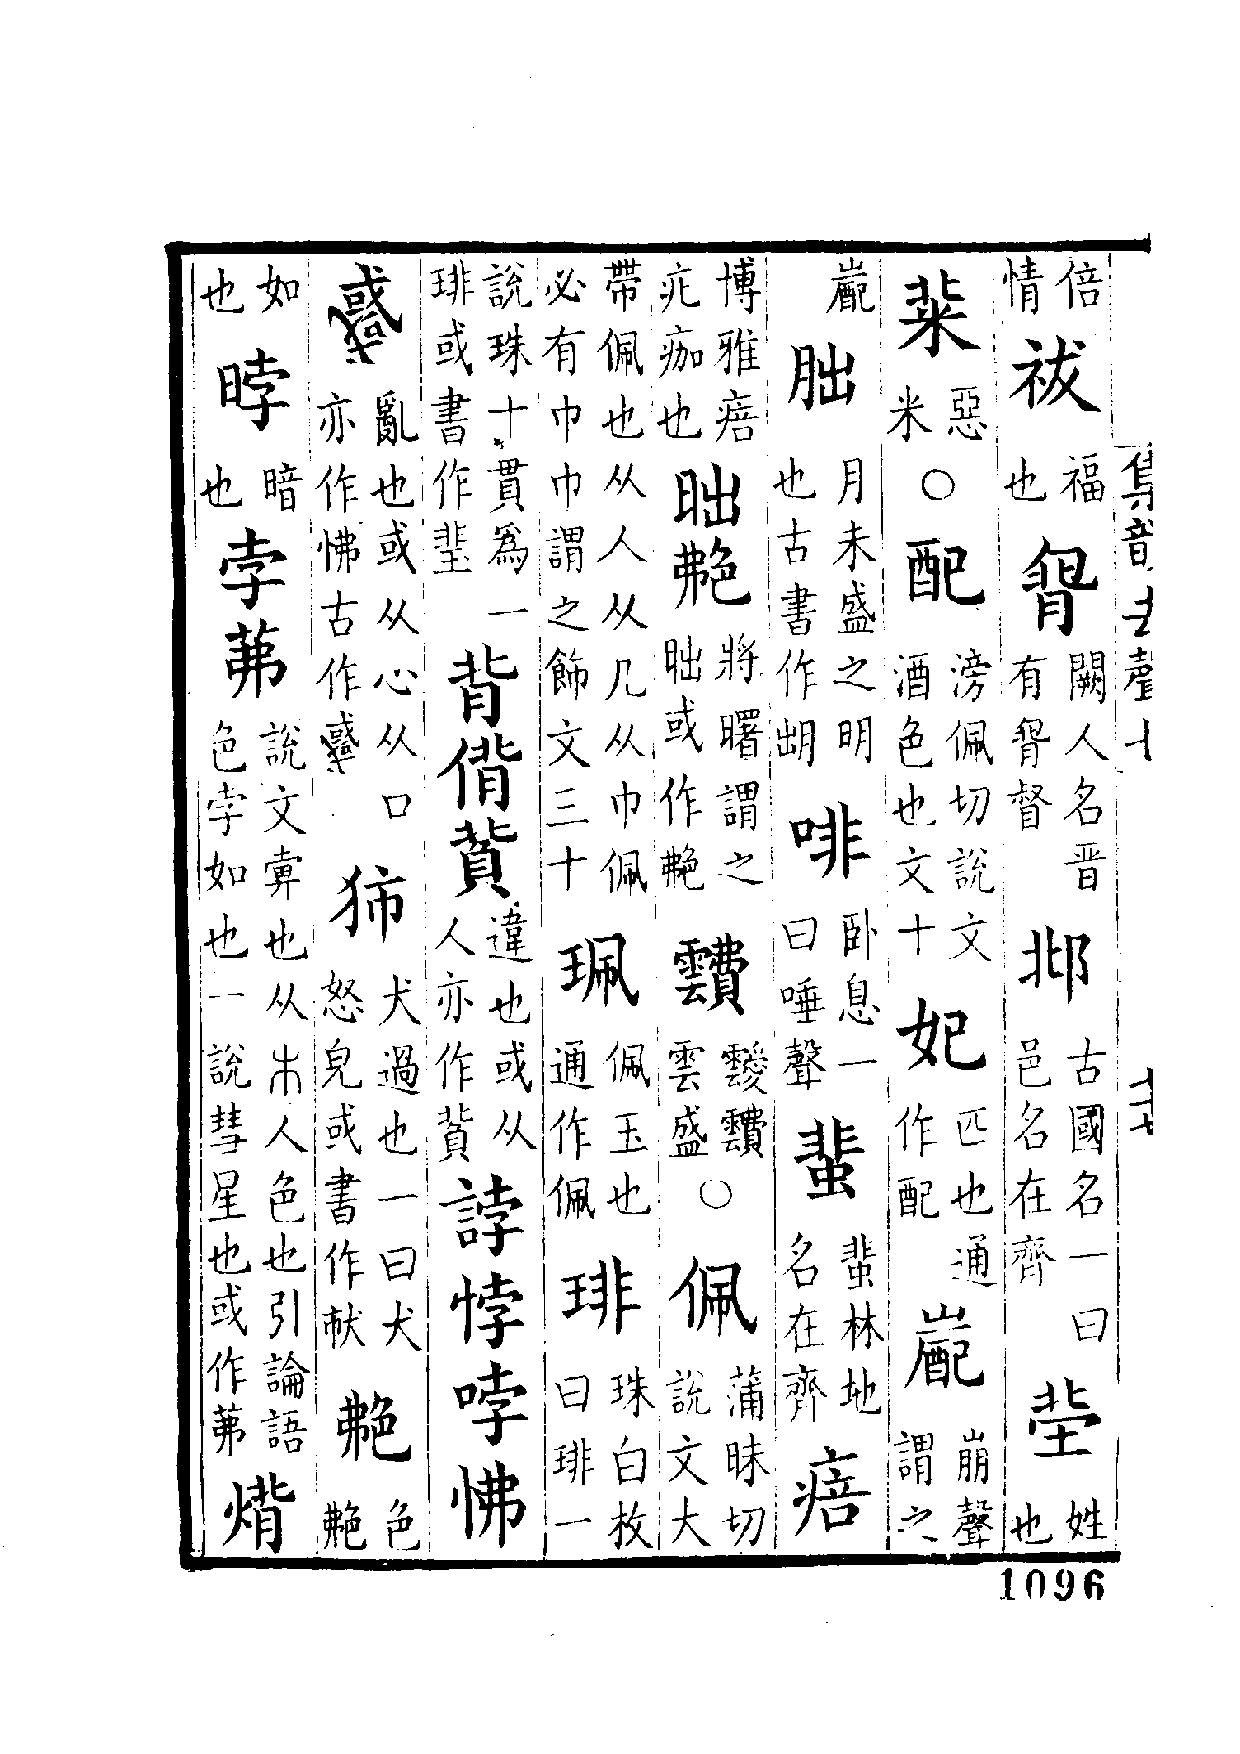 倍情祓福也 闕人名晋有 督邶古國名一曰邑名在齊 姓也
䊧惡米○配滂佩切說文酒色也文十妃匹也通作配嶏崩聲謂之
嶏朏月未盛之明也古書作 啡卧息一曰唾聲蜚蜚林地名在齊㾦
博雅㾦疕痂也昢艴將曙謂之昢或作艴靅靉靅雲盛○佩蒲昧切說文大
帶佩也从人从几从巾佩必有巾巾謂之飾文三十珮佩玉也通作佩琲珠白枚曰琲一
說珠十貫爲一琲或書作琧背偝 違也或从人亦作 誖悖哱怫
亂也或从心从口亦作怫古作 犬過也一曰犬怒皃或書作 艴色艴
如也㫲暗也孛 說文𡴀也从巿人色也引論語色孛如也一說彗星也或作 㷶
集韻去聲七
十七
1096